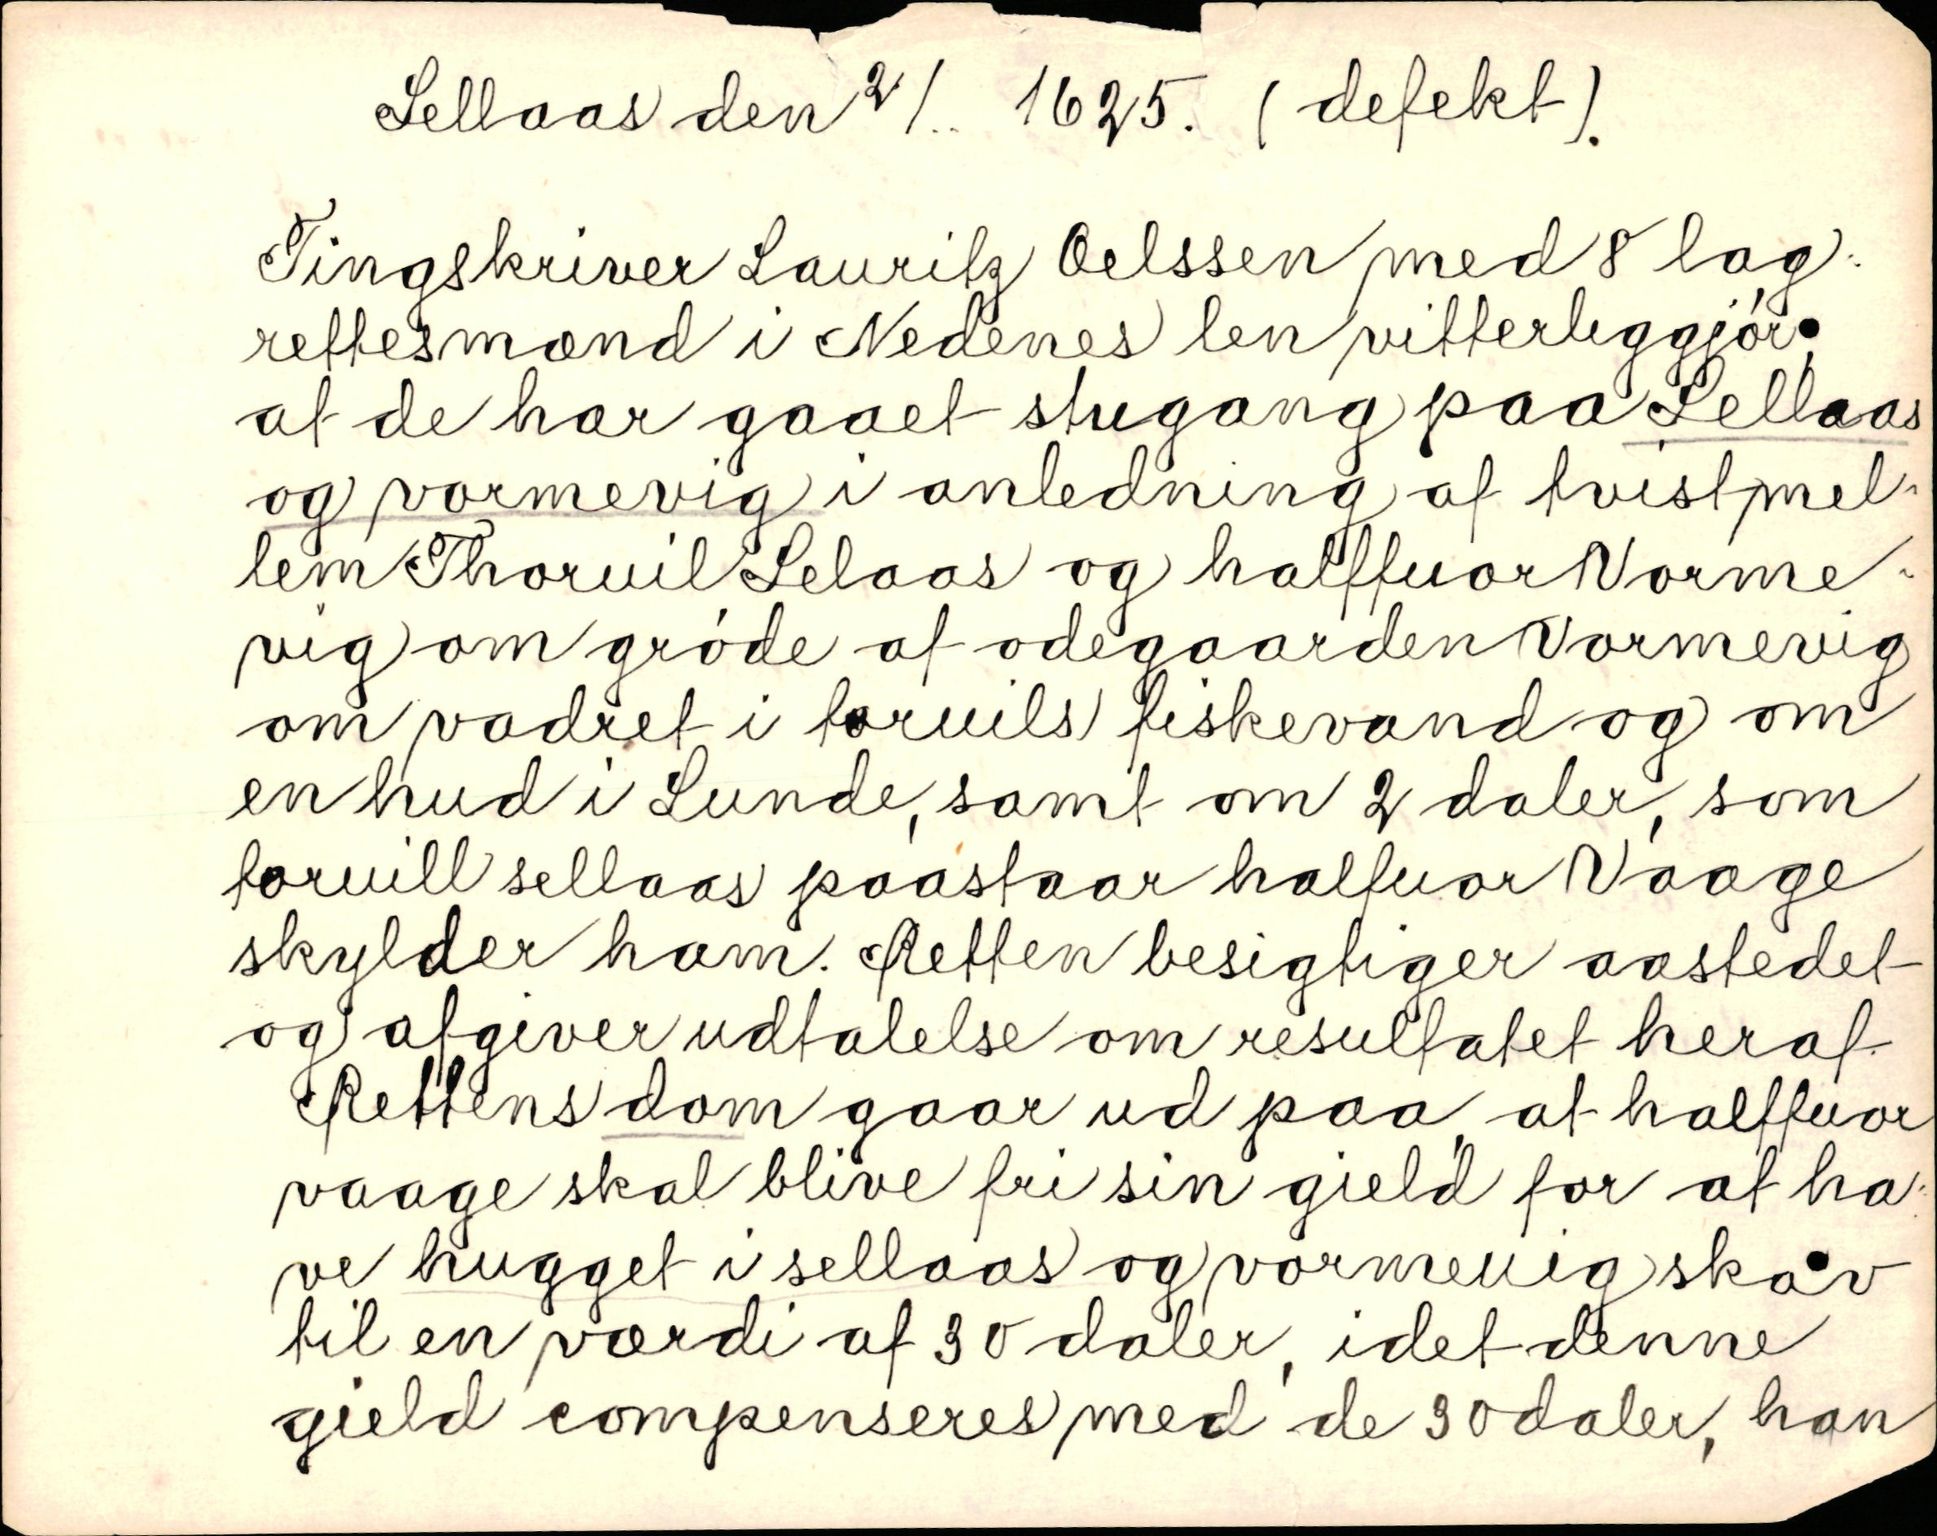 Sellaas den 2/.. 1625. (defekt).
Tingskriver Lauritz Oelssen med 8 lag-
rettesmænd i Nedenes len vitterliggjør,
at de har gaaet stugang paa Sellaas
og vormevig i anledning af tvist mel-
lem Thoruil Selaas og halffuor Vorme-
vig om grøde af ødegaarden Vormevig
om vadret i toruils fiskevand og om
en hud i Lunde, samt om 2 daler, som
toruill sellaas paastaar halfuor Vaage
skylder ham. Retten besigtiger aastedet
og afgiver udtalelse om resultatet heraf.
Rettens dom gaar ud paa, at halffuor
vaage skal blive fri sin gield for at ha-
ve hugget i sellaas og vormeuig skov
til en værdi af 30 daler, idet denne
gield compenseres med de 30 daler, han